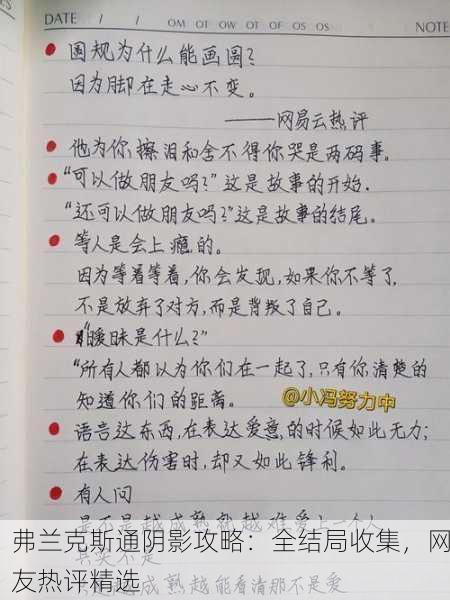 DATE / /
OM OT OW OT OF OS OS
NOTE
圆规为什么能画圆?
因为脚在走心不变。
——网易云热评
他为你擦泪和舍不得你哭是两码事。
“可以做朋友吗?”这是故事的开始.
“还可以做朋友吗?”这是故事的结尾。
等人是会上瘾的。
因为等着等着,你会发现,如果你不等了,
不是放弃了对方,而是背叛了自己。
“暧昧是什么?”
“所有人都以为你们在一起了,只有你清楚的
知道你们的距离。
@小冯努力中
语言这东西,在表达爱意的时候如此无力;
在表达伤害时,却又如此锋利。
有人问
是不是越成熟就越难爱上一个人
其实不是
越成熟越能看清那不是爱
弗兰克斯通阴影攻略：全结局收集，网
友热评精选